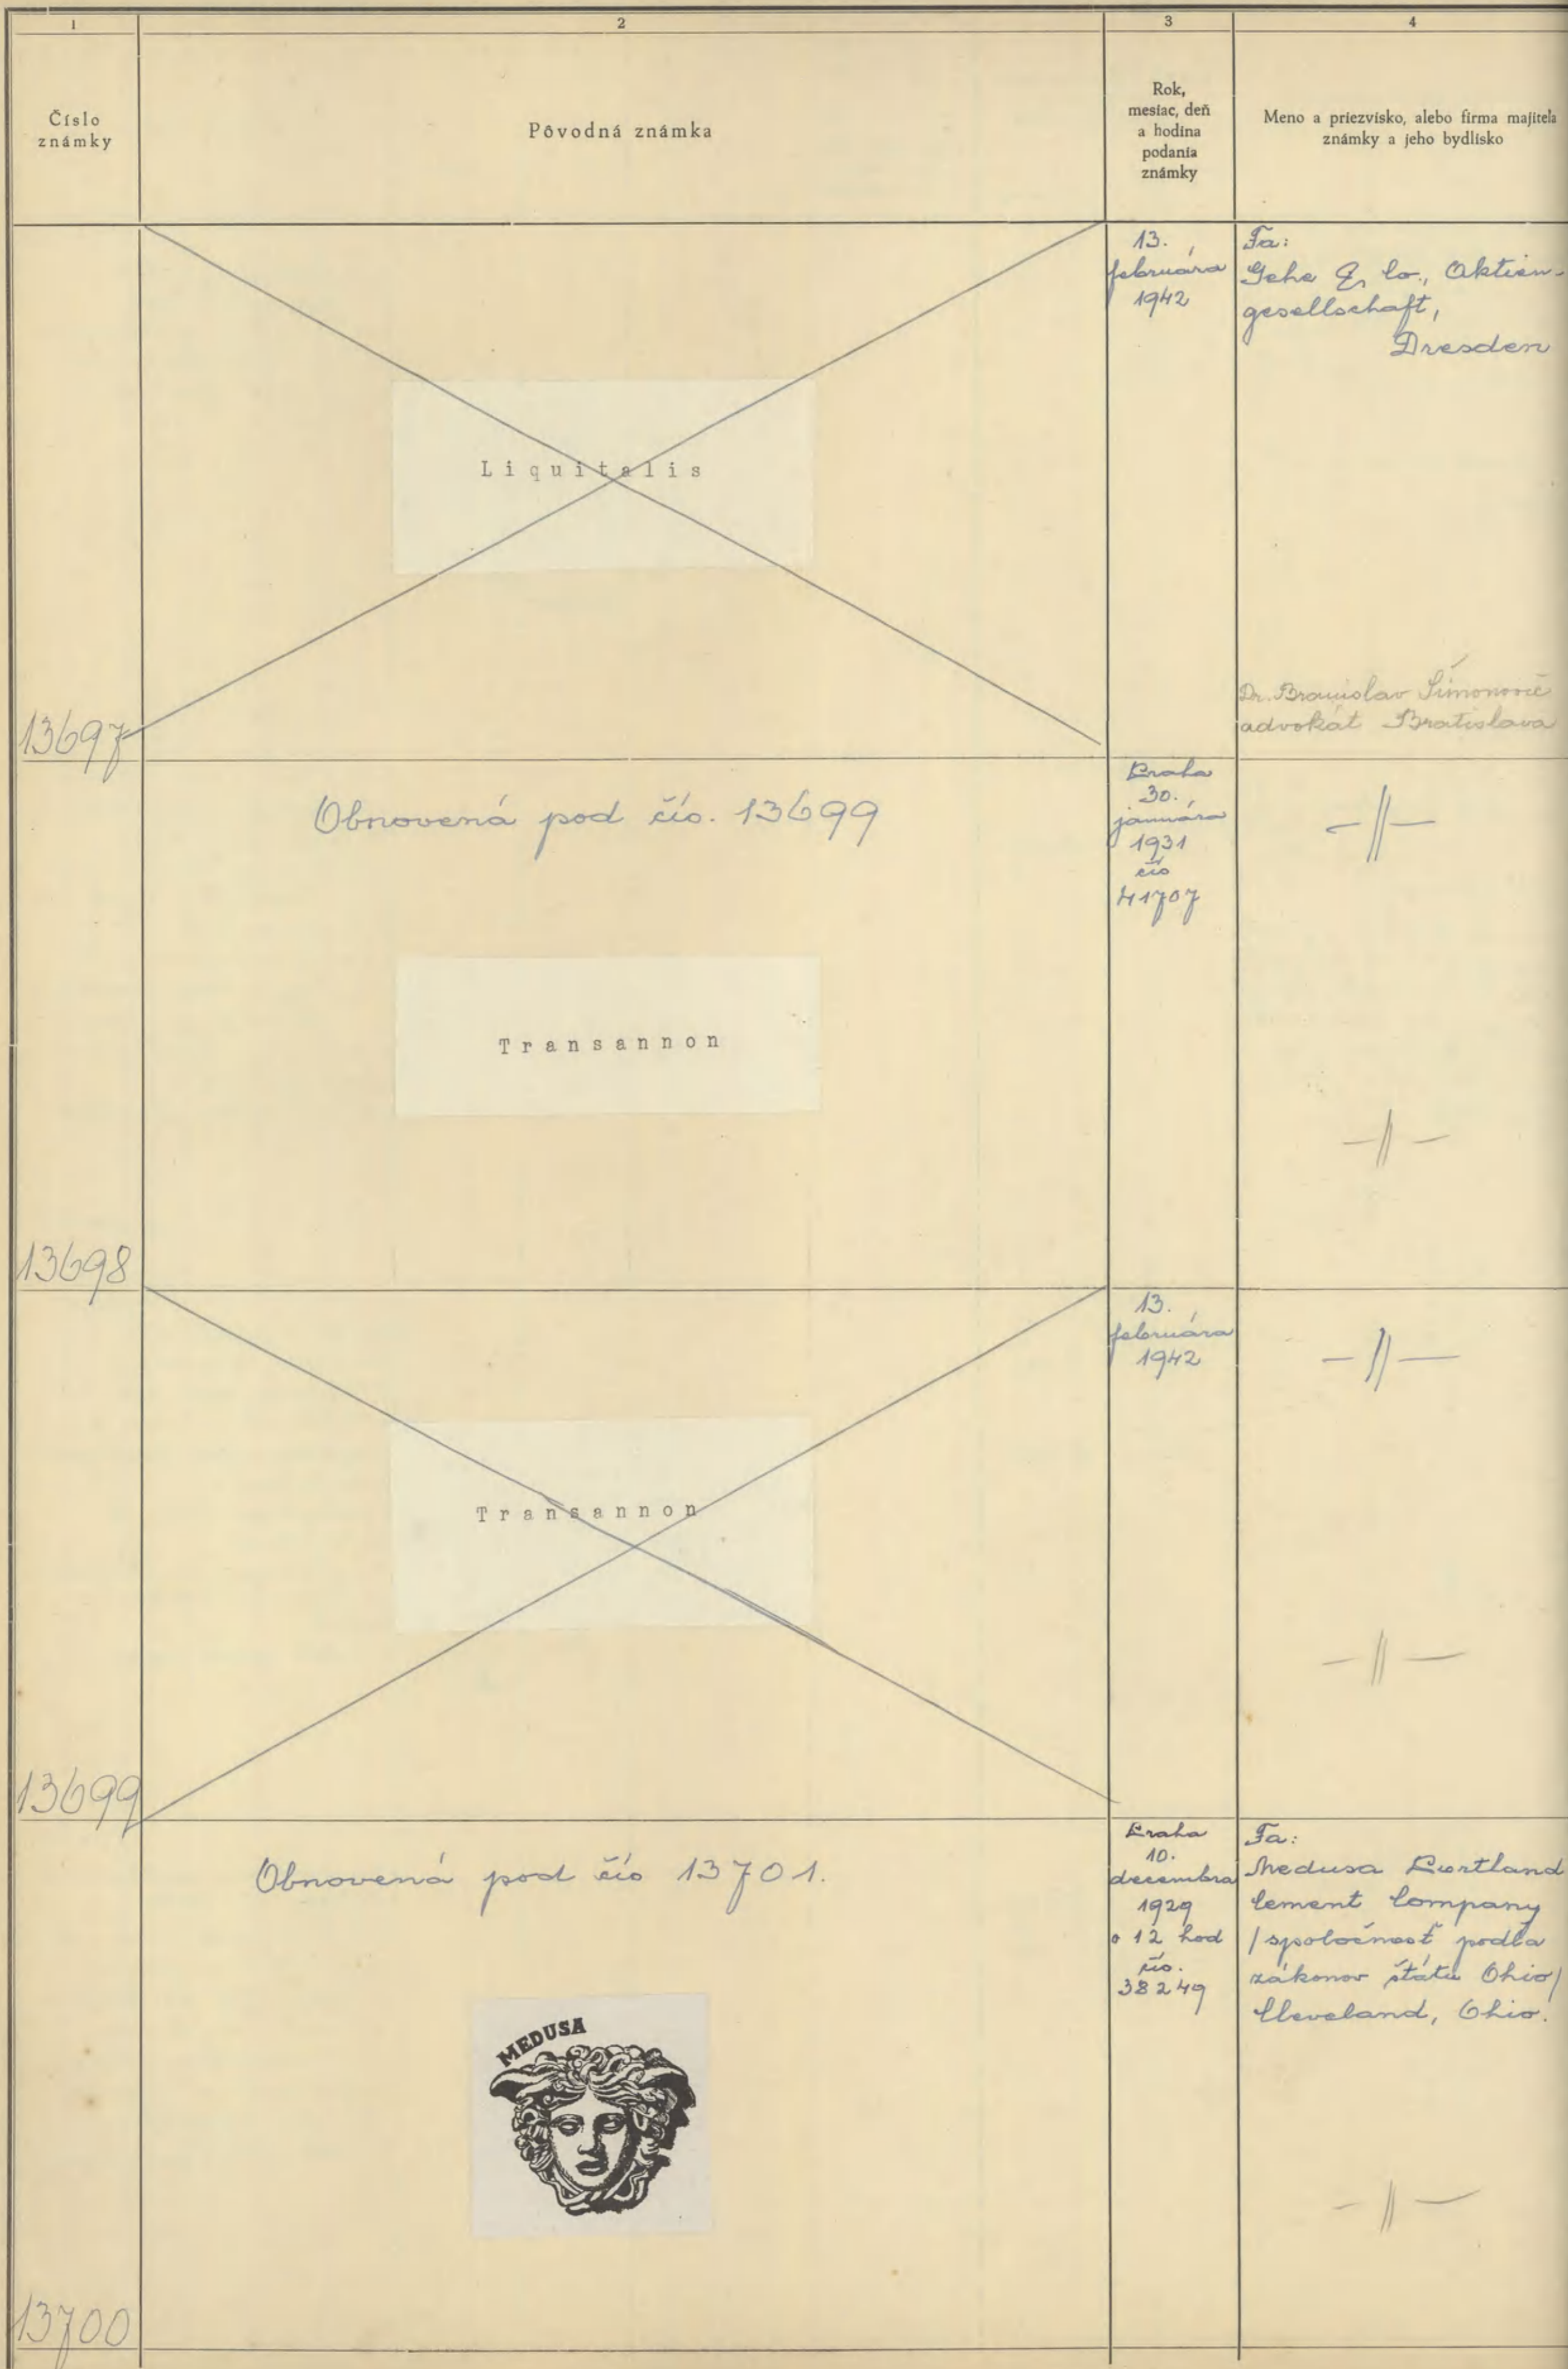 1
2
3
4
Číslo
známky
Pôvodná známka
Rok,
mesiac, deň
a hodina
podania
známky
Meno a priezvisko, alebo firma majiteľa
známky a jeho bydlisko
13697
Liquitalis
13.
februára
1942
Fa:
Gehe & Co., Aktien-
gesellschaft,
Dresden
Dr. Branislav Šimonovič
advokát Bratislava
13698
Obnovená pod čís. 13699
Transannon
Praha
30.
januára
1931
čís
41707
-||-
-||-
13699
Transannon
13.
februára
1942
-||-
-||-
13700
Obnovená pod čís 13701.
MEDUSA
Praha
10.
decembra
1929
o 12 hod
čís.
38249
Fa:
Medusa Portland
Cement Company
/spoločnosť podľa
zákonov štátu Ohio/
Cleveland, Ohio.
-||-